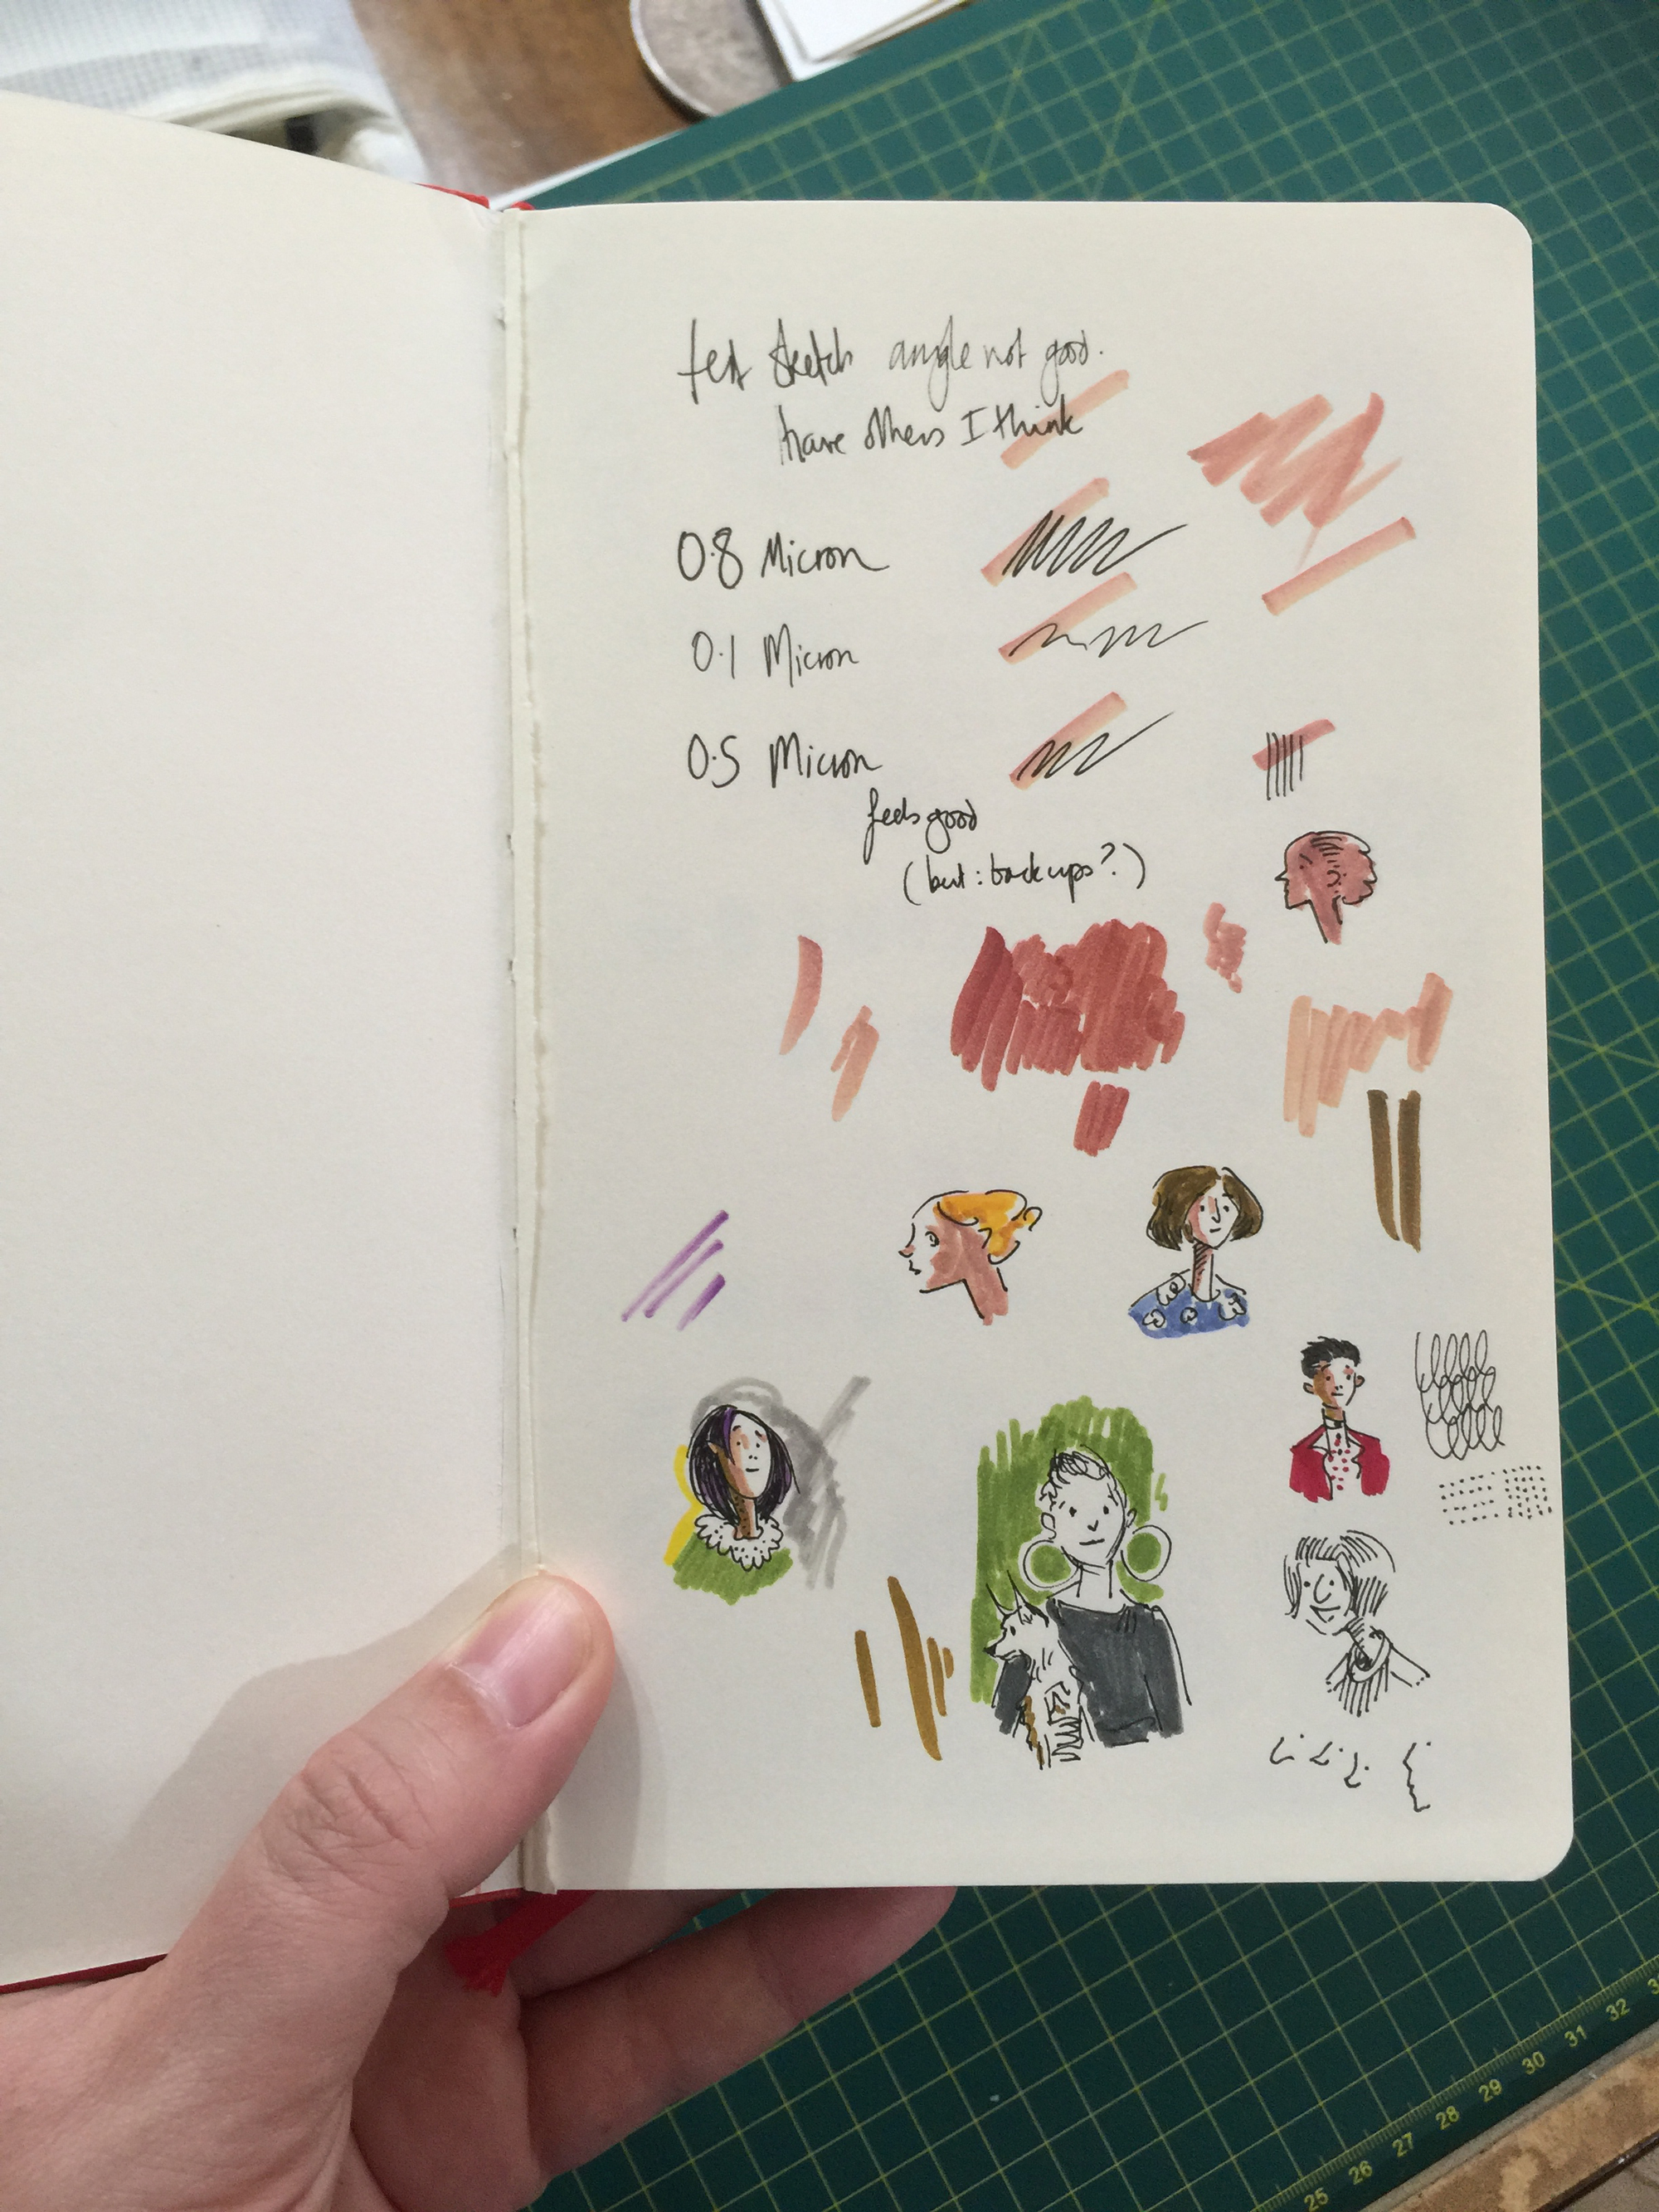 test sketch angle not good.
have others I think
0.8 Micron
0.1 Micron
0.5 Micron
feels good
(but: backups?)
32
31
30
29
28
27
26
25